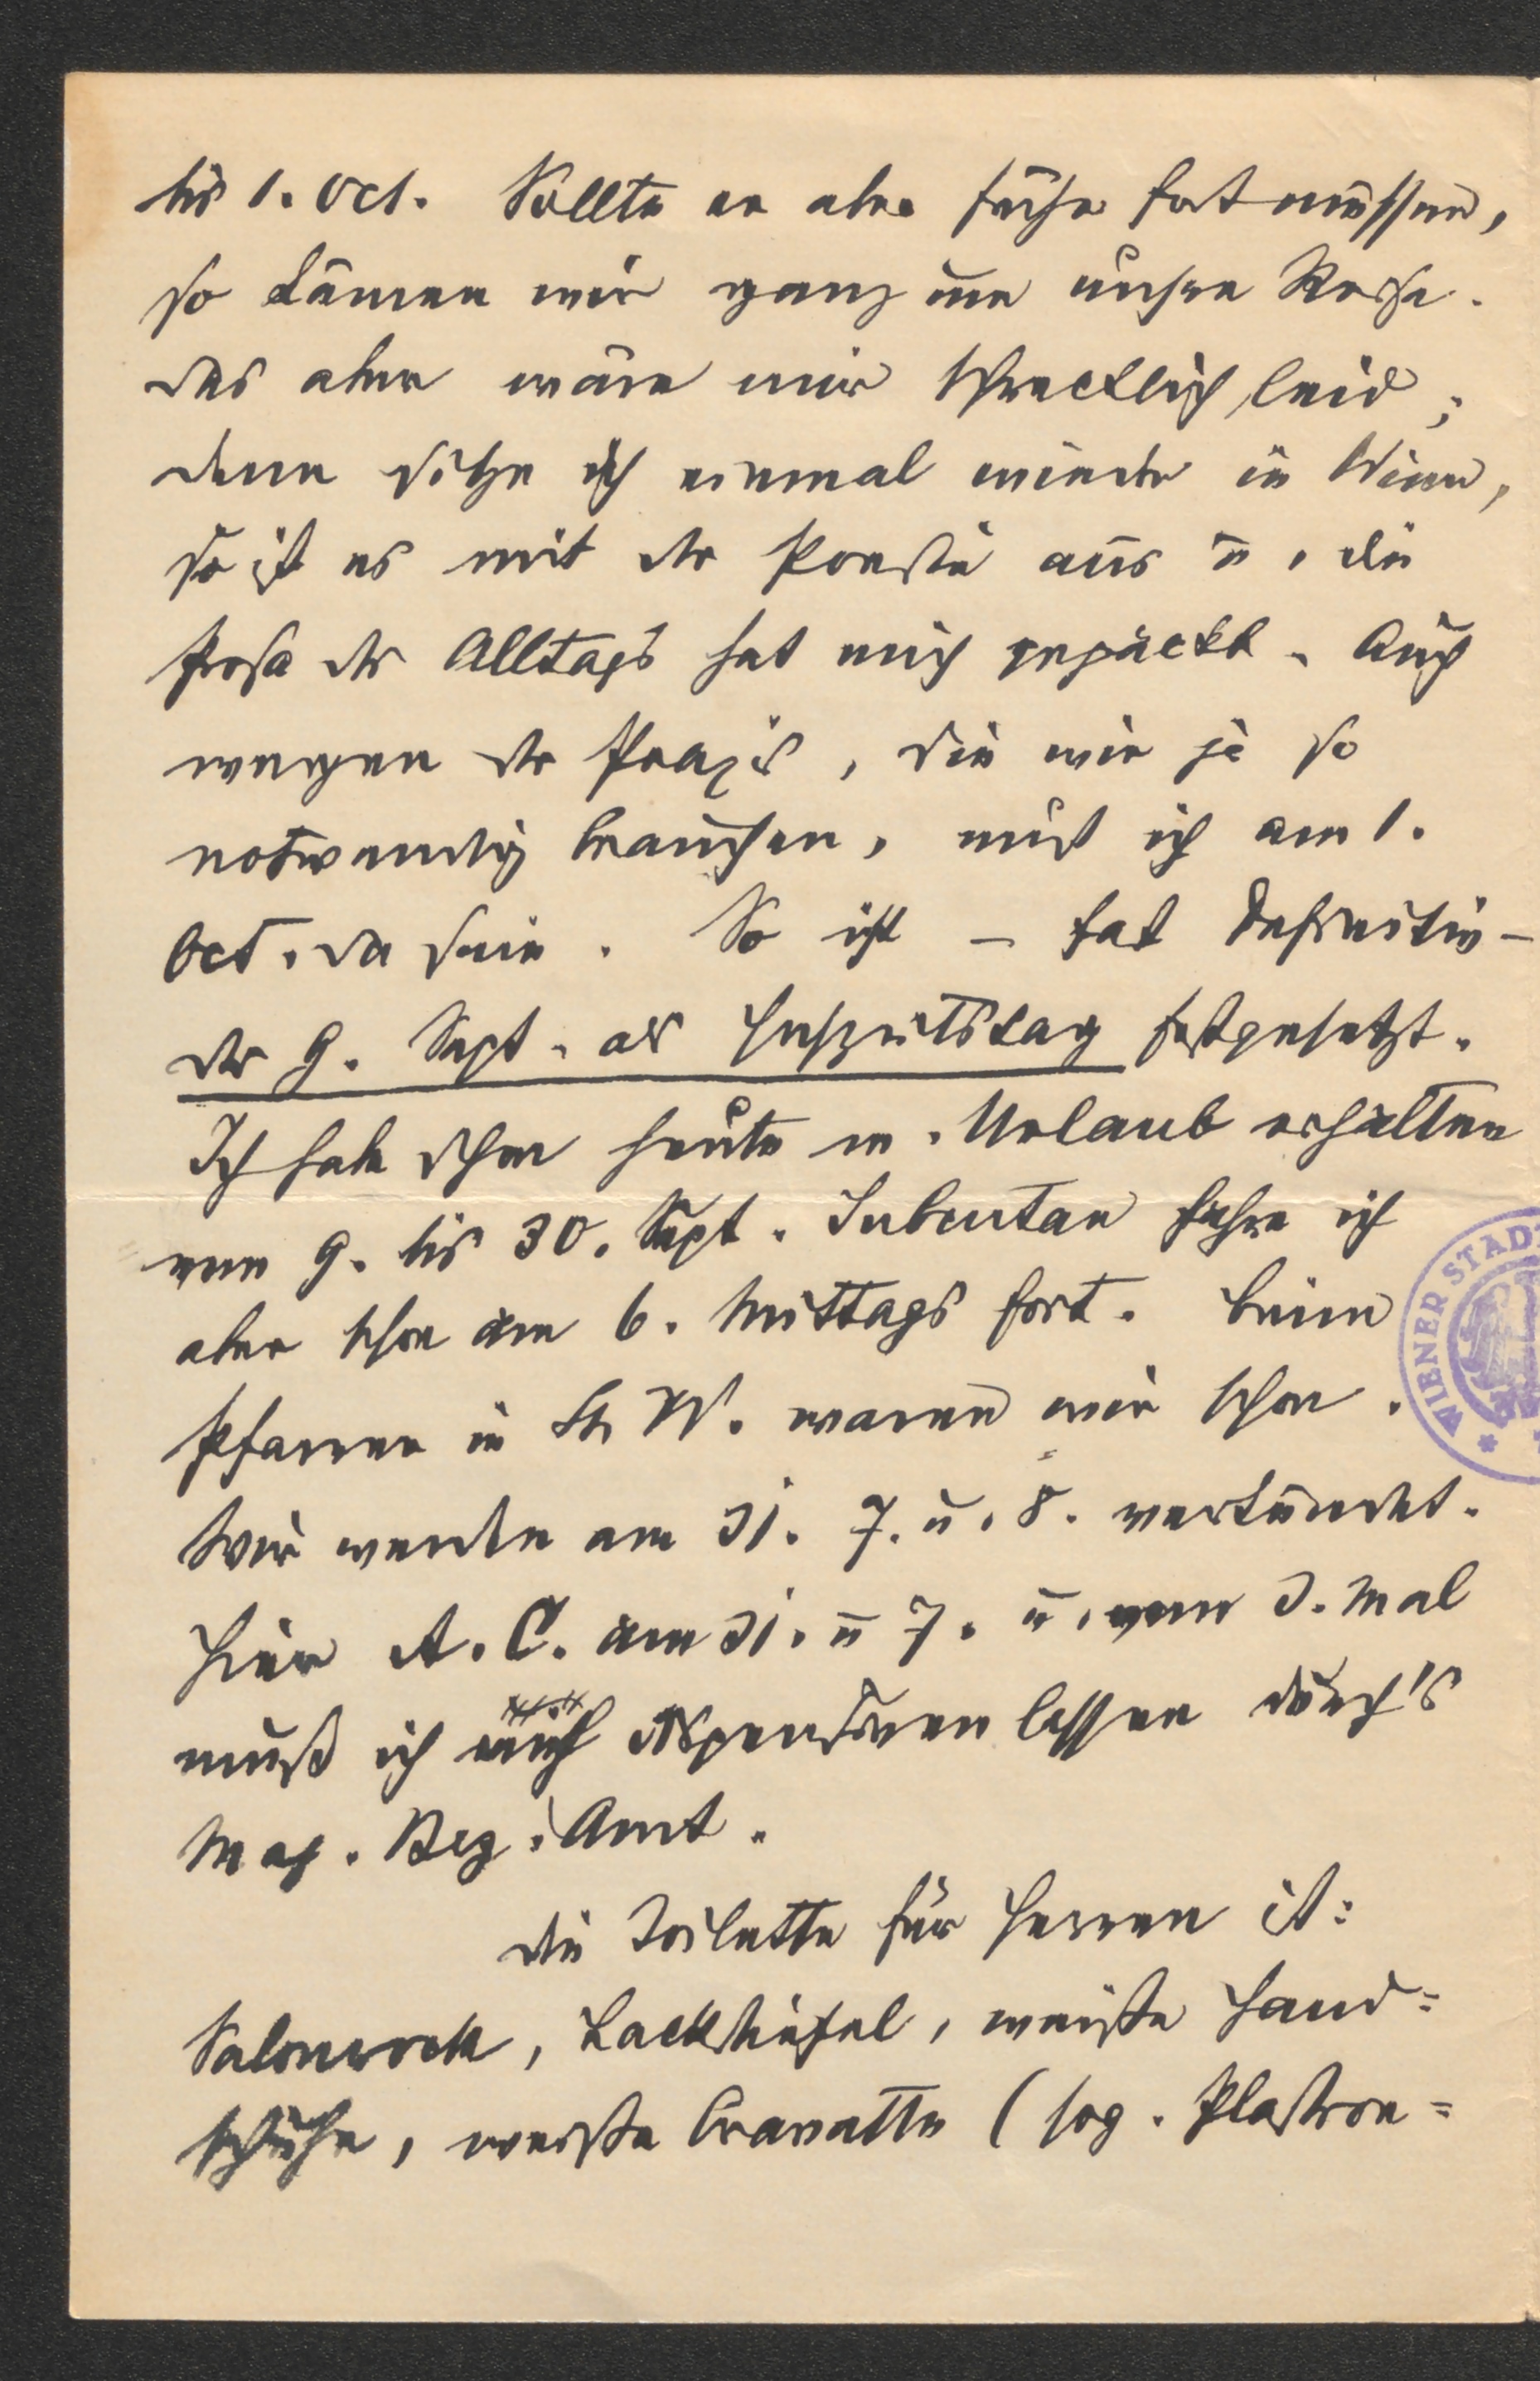 bis 1. Oct. Sollte er aber früher fort müssen,
so kämen wir ganz um unsre Reise.
Das aber wäre mir schrecklich leid;
denn sitze ich einmal wieder in Wien,
so ist es mit der Poesie aus u. die
Prosa des Alltags hat mich gepackt. Auch
wegen der Praxis, die wir ja so
notwendig brauchen, muß ich am 1.
Oct. da sein. So ist – fast definitiv –
der 9. Sept. als Hochzeitstag festgesetzt.
Ich habe schon heute m. Urlaub erhalten
vom 9. bis 30. Sept. Subcutan fahre ich
aber schon am 6. Mittags fort. Beim
Pfarrer in St. W. waren wir schon.
Wir werden am 31. 7. u. 8. verkündet.
Hier A. C. am 31. u 7. u. vom 3. Mal
muß ich mich dispensiren lassen durch's
Mag. Bez. Amt.
Die Toilette für Herren ist:
Salonrock, Lackstiefel, weiße Hand=
schuhe, weiße Cravatte (sog. Plastron=
WIENER STAD